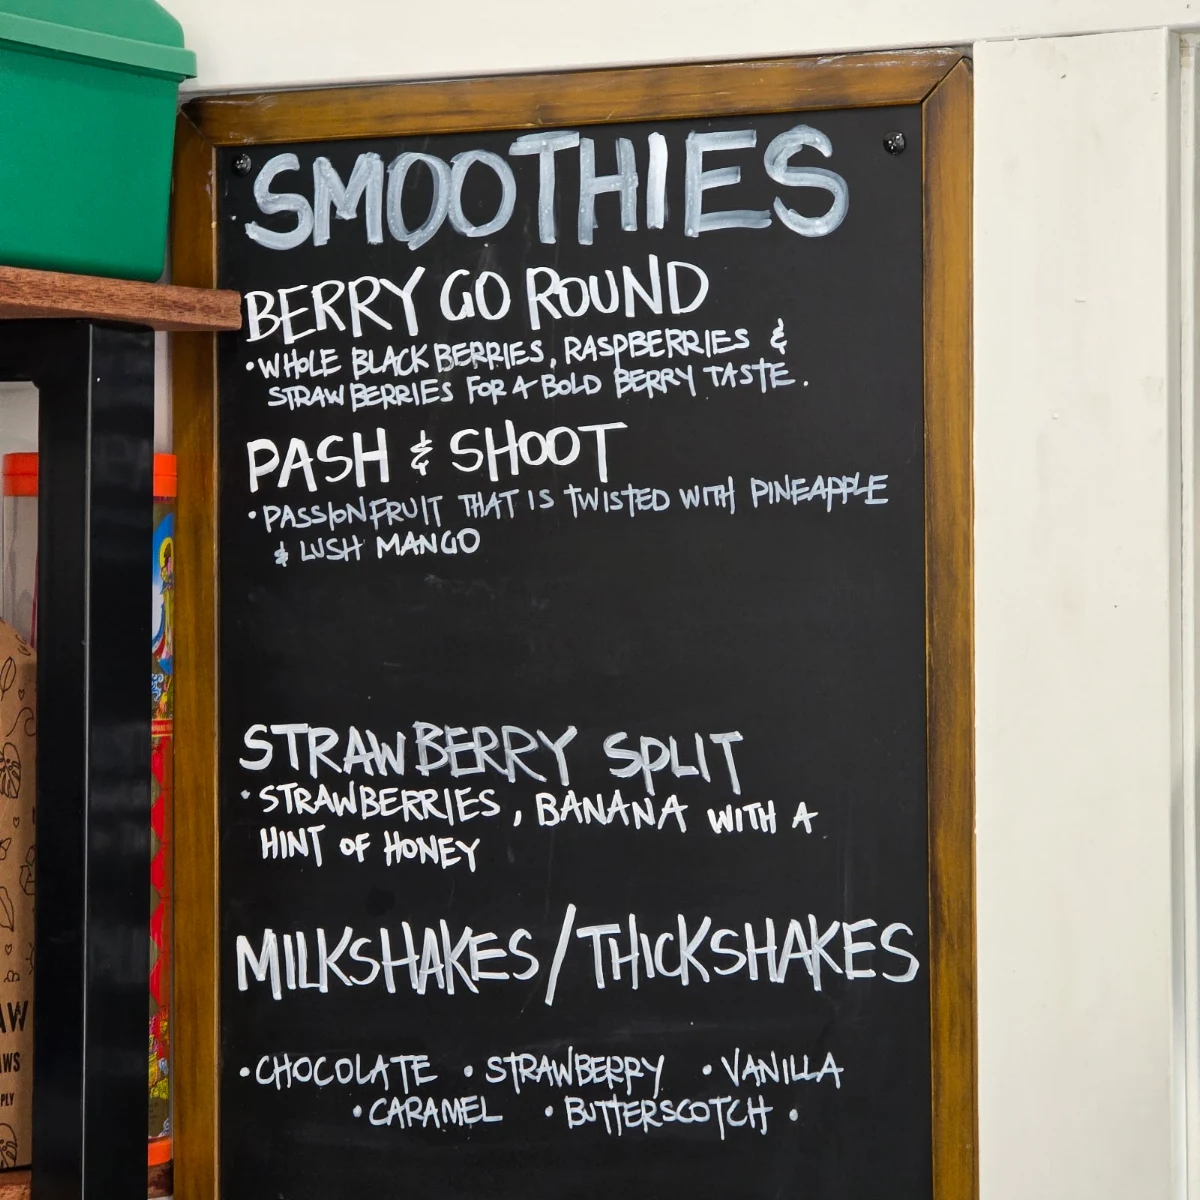 SMOOTHIES
BERRY GO ROUND
• WHOLE BLACKBERRIES, RASPBERRIES &
STRAWBERRIES FOR A BOLD BERRY TASTE.
PASH & SHOOT
• PASSIONFRUIT THAT IS TWISTED WITH PINEAPPLE
& LUSH MANGO
STRAWBERRY SPLIT
• STRAWBERRIES, BANANA WITH A
HINT OF HONEY
MILKSHAKES/THICKSHAKES
• CHOCOLATE • STRAWBERRY • VANILLA
• CARAMEL • BUTTERSCOTCH •
AW
AWS
PLY